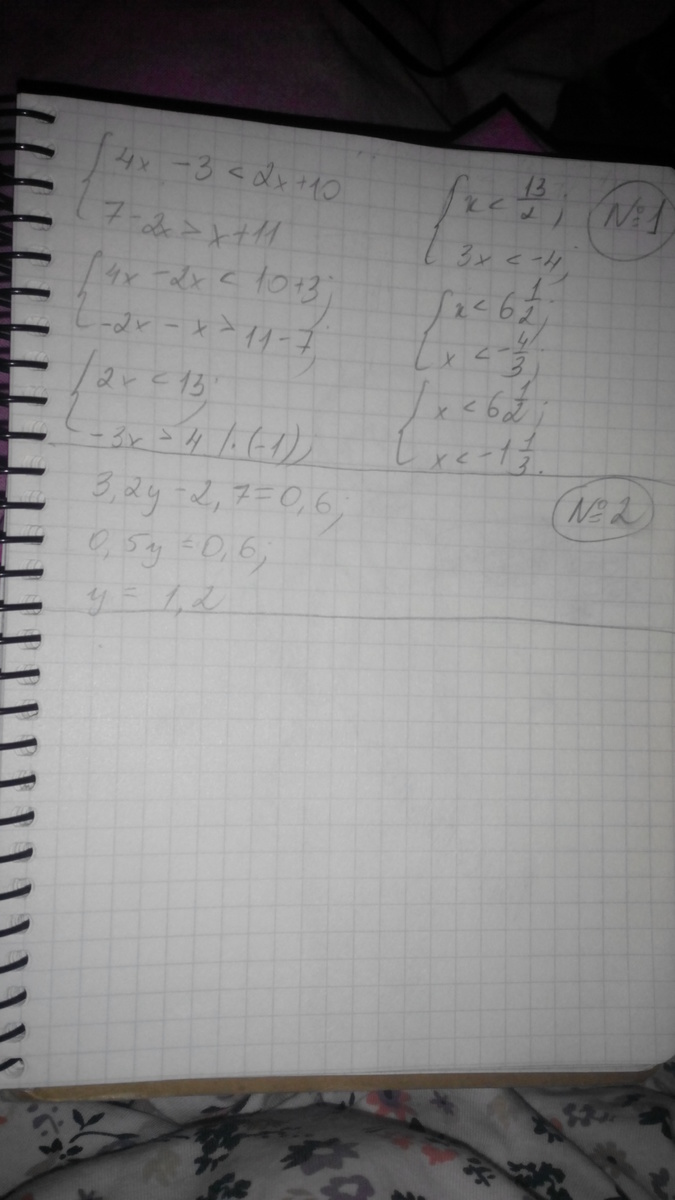 4x - 3 < 2x+10
7-2x > x+11
4x - 2x < 10+3;
-2x - x > 11-7;
2x < 13;
-3x > 4 |·(-1);
x < 13/2;
3x < -4;
x < 6 1/2;
x < -4/3;
x < 6 1/2;
x < -1 1/3.
№1
3,2y - 2,7 = 0,6;
0,5y = 0,6;
y = 1,2
№2